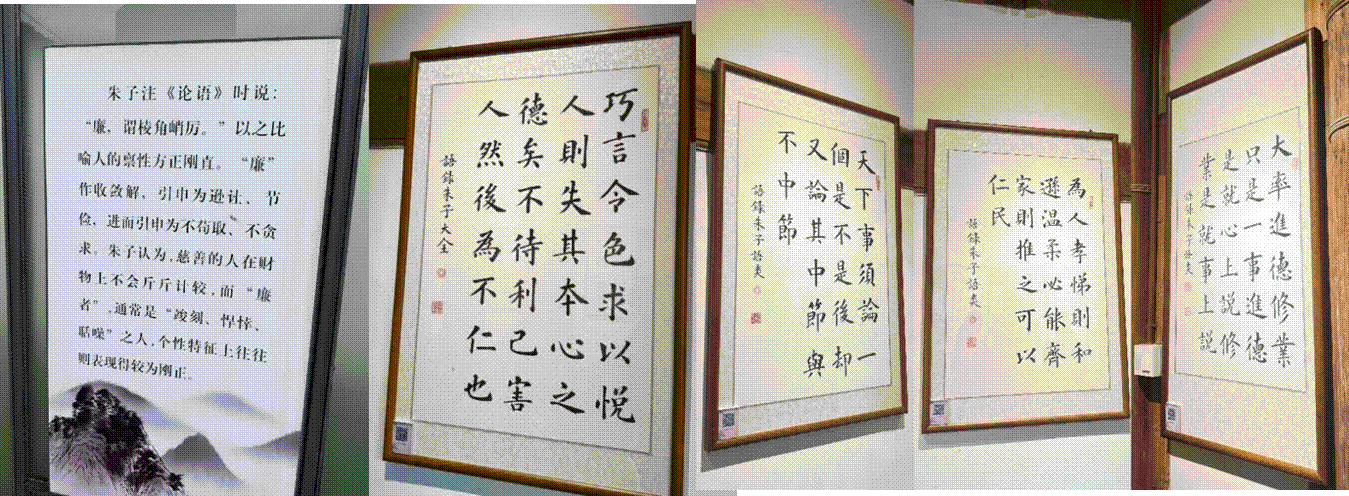 朱子注《论语》时说：
“廉，谓棱角峭厉。”以之比
喻人的禀性方正刚直。“廉”
作收敛解，引申为逊让、节
俭，进而引申为不苟取、不贪
求。朱子认为，慈善的人在财
物上不会斤斤计较，而“廉
者”，通常是“峻刻、悍悻、
聒噪”之人，个性特征上往往
则表现得较为刚正。
巧言令色求以悦
人則失其本心之
德矣不待利己害
人然後為不仁也
語錄朱子大全
天下事須論一
個是不是後却
又論其中節與
不中節
語錄朱子語类
為人孝悌則和
遜温柔必能齊
家則推之可以
仁民
語錄朱子語类
大率進德修業
只是一事進德
是就心上説修
業是就事上説
語錄朱子語类